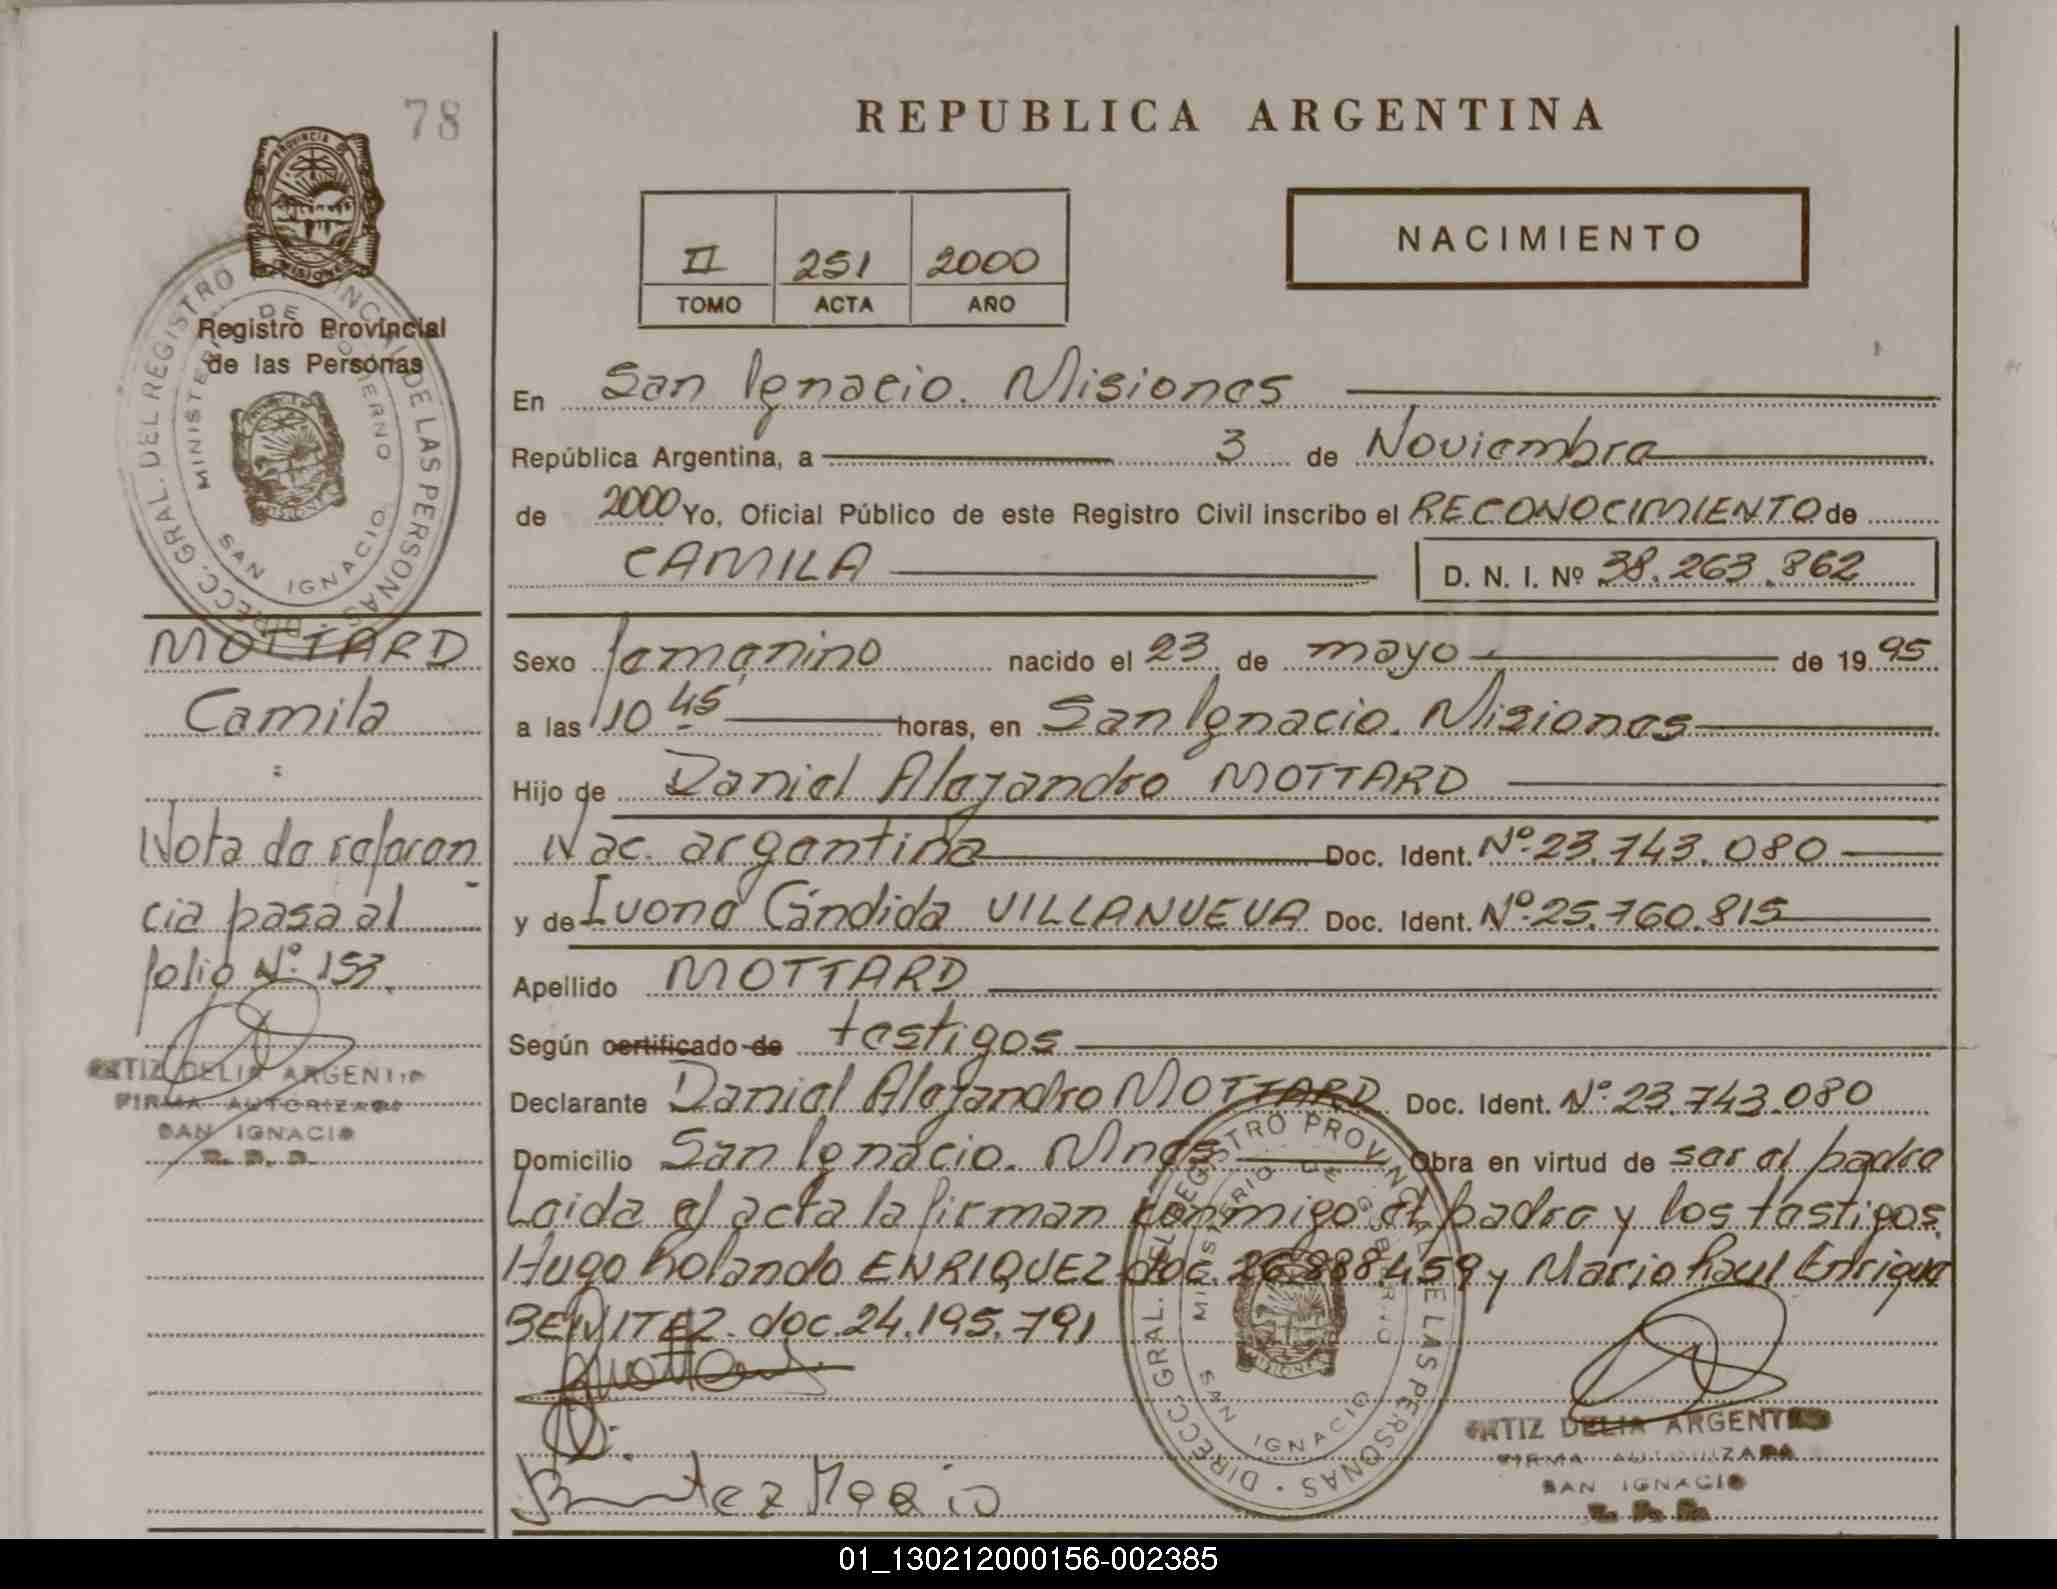 78
REPUBLICA ARGENTINA
PROVINCIA D
MISIONES
Registro Provincial
de las Personas
II 251 2000
TOMO ACTA AÑO
NACIMIENTO
En San Ignacio. Misiones
República Argentina, a 3 de Noviembre
de 2000 Yo, Oficial Público de este Registro Civil inscribo el RECONOCIMIENTO de
CAMILA D. N. I. Nº 38.263.862
DIRECC. GRAL. DEL REGISTRO DE LAS PERSONAS
MINISTER DE GOBIERNO
SAN IGNACIO
MOTTARD
Camila
Nota de referen
cia pasa al
folio Nº 153.
ORTIZ DELIA ARGENTINA
FIRMA AUTORIZADA
SAN IGNACIO
Sexo femenino nacido el 23 de mayo de 1995
a las 10 45 horas, en San Ignacio. Misiones
Hijo de Daniel Alejandro MOTTARD
Nac. argentina Doc. Ident. Nº 23.743.080
y de Ivone Cándida VILLANUEVA Doc. Ident. Nº 25.760.815
Apellido MOTTARD
Según certificado de testigos
Declarante Daniel Alejandro MOTTARD Doc. Ident. Nº 23.743.080
Domicilio San Ignacio. Mnes Obra en virtud de ser el padre
Leida el acta la firman conmigo el padre y los testigos
Hugo Rolando ENRIQUEZ doc. 26.888.459 y Mario Raul Enrique
BENITEZ. doc. 24.195.791
Benitez Mario
DIRECC. GRAL. DEL REGISTRO PROVINCIAL DE LAS PERSONAS
MINISTERIO DE GOBIERNO
SAN IGNACIO
ORTIZ DELIA ARGENTINA
FIRMA AUTORIZADA
SAN IGNACIO
01_130212000156-002385